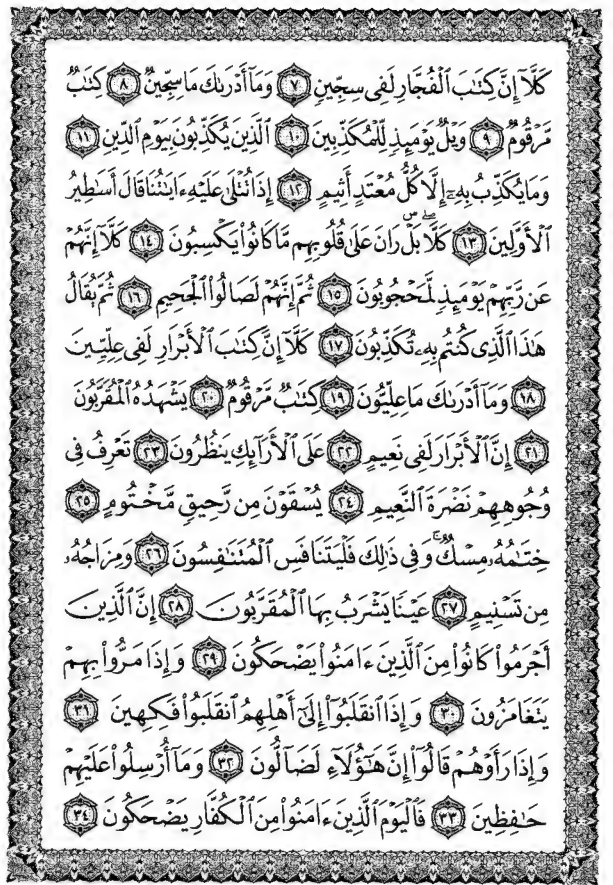 كَلَّآ إِنَّ كِتَٰبَ ٱلْفُجَّارِ لَفِى سِجِّينٍ ٧ وَمَآ أَدْرَىٰكَ مَا سِجِّينٌ ٨ كِتَٰبٌ
مَّرْقُومٌ ٩ وَيْلٌ يَوْمَئِذٍ لِّلْمُكَذِّبِينَ ١٠ ٱلَّذِينَ يُكَذِّبُونَ بِيَوْمِ ٱلدِّينِ ١١
وَمَا يُكَذِّبُ بِهِۦٓ إِلَّا كُلُّ مُعْتَدٍ أَثِيمٍ ١٢ إِذَا تُتْلَىٰ عَلَيْهِ ءَايَٰتُنَا قَالَ أَسَٰطِيرُ
ٱلْأَوَّلِينَ ١٣ كَلَّا ۖ بَلْ ۜ رَانَ عَلَىٰ قُلُوبِهِم مَّا كَانُوا۟ يَكْسِبُونَ ١٤ كَلَّآ إِنَّهُمْ
عَن رَّبِّهِمْ يَوْمَئِذٍ لَّمَحْجُوبُونَ ١٥ ثُمَّ إِنَّهُمْ لَصَالُوا۟ ٱلْجَحِيمِ ١٦ ثُمَّ يُقَالُ
هَٰذَا ٱلَّذِى كُنتُم بِهِۦ تُكَذِّبُونَ ١٧ كَلَّآ إِنَّ كِتَٰبَ ٱلْأَبْرَارِ لَفِى عِلِّيِّينَ
١٨ وَمَآ أَدْرَىٰكَ مَا عِلِّيُّونَ ١٩ كِتَٰبٌ مَّرْقُومٌ ٢٠ يَشْهَدُهُ ٱلْمُقَرَّبُونَ
٢١ إِنَّ ٱلْأَبْرَارَ لَفِى نَعِيمٍ ٢٢ عَلَى ٱلْأَرَآئِكِ يَنظُرُونَ ٢٣ تَعْرِفُ فِى
وُجُوهِهِمْ نَضْرَةَ ٱلنَّعِيمِ ٢٤ يُسْقَوْنَ مِن رَّحِيقٍ مَّخْتُومٍ ٢٥
خِتَٰمُهُۥ مِسْكٌ ۚ وَفِى ذَٰلِكَ فَلْيَتَنَافَسِ ٱلْمُتَنَٰفِسُونَ ٢٦ وَمِزَاجُهُۥ
مِن تَسْنِيمٍ ٢٧ عَيْنًا يَشْرَبُ بِهَا ٱلْمُقَرَّبُونَ ٢٨ إِنَّ ٱلَّذِينَ
أَجْرَمُوا۟ كَانُوا۟ مِنَ ٱلَّذِينَ ءَامَنُوا۟ يَضْحَكُونَ ٢٩ وَإِذَا مَرُّوا۟ بِهِمْ
يَتَغَامَزُونَ ٣٠ وَإِذَا ٱنقَلَبُوٓا۟ إِلَىٰٓ أَهْلِهِمُ ٱنقَلَبُوا۟ فَكِهِينَ ٣١
وَإِذَا رَأَوْهُمْ قَالُوٓا۟ إِنَّ هَٰٓؤُلَآءِ لَضَآلُّونَ ٣٢ وَمَآ أُرْسِلُوا۟ عَلَيْهِمْ
حَٰفِظِينَ ٣٣ فَٱلْيَوْمَ ٱلَّذِينَ ءَامَنُوا۟ مِنَ ٱلْكُفَّارِ يَضْحَكُونَ ٣٤